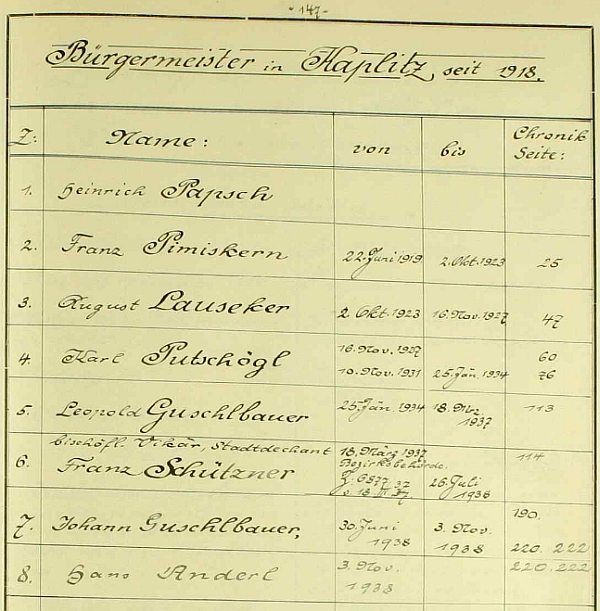 - 147 -
Bürgermeister in Kaplitz, seit 1918.
Z: Name: von bis Chronik Seite:
1. Heinrich Papsch
2. Franz Pimiskern 22. Juni 1919 2. Okt. 1923 25
3. August Lauseker 2. Okt. 1923 16. Nov. 1927 47
4. Karl Putschögl 16. Nov. 1927 60
10. Nov. 1931 25. Jän. 1934 76
5. Leopold Guschlbauer 25. Jän. 1934 18. Mrz. 1937 113
bischöfl. Vikär, Stadtdechant 18. März 1937 114
6. Franz Schützner Bezirksbehörde.
Z. 6877/37 26. Juli
v. 18. III. 37. 1938
7. Johann Guschlbauer, 30. Juni 3. Nov. 190.
1938 1938 220. 222
8. Hans Anderl 3. Nov. 220. 222
1938